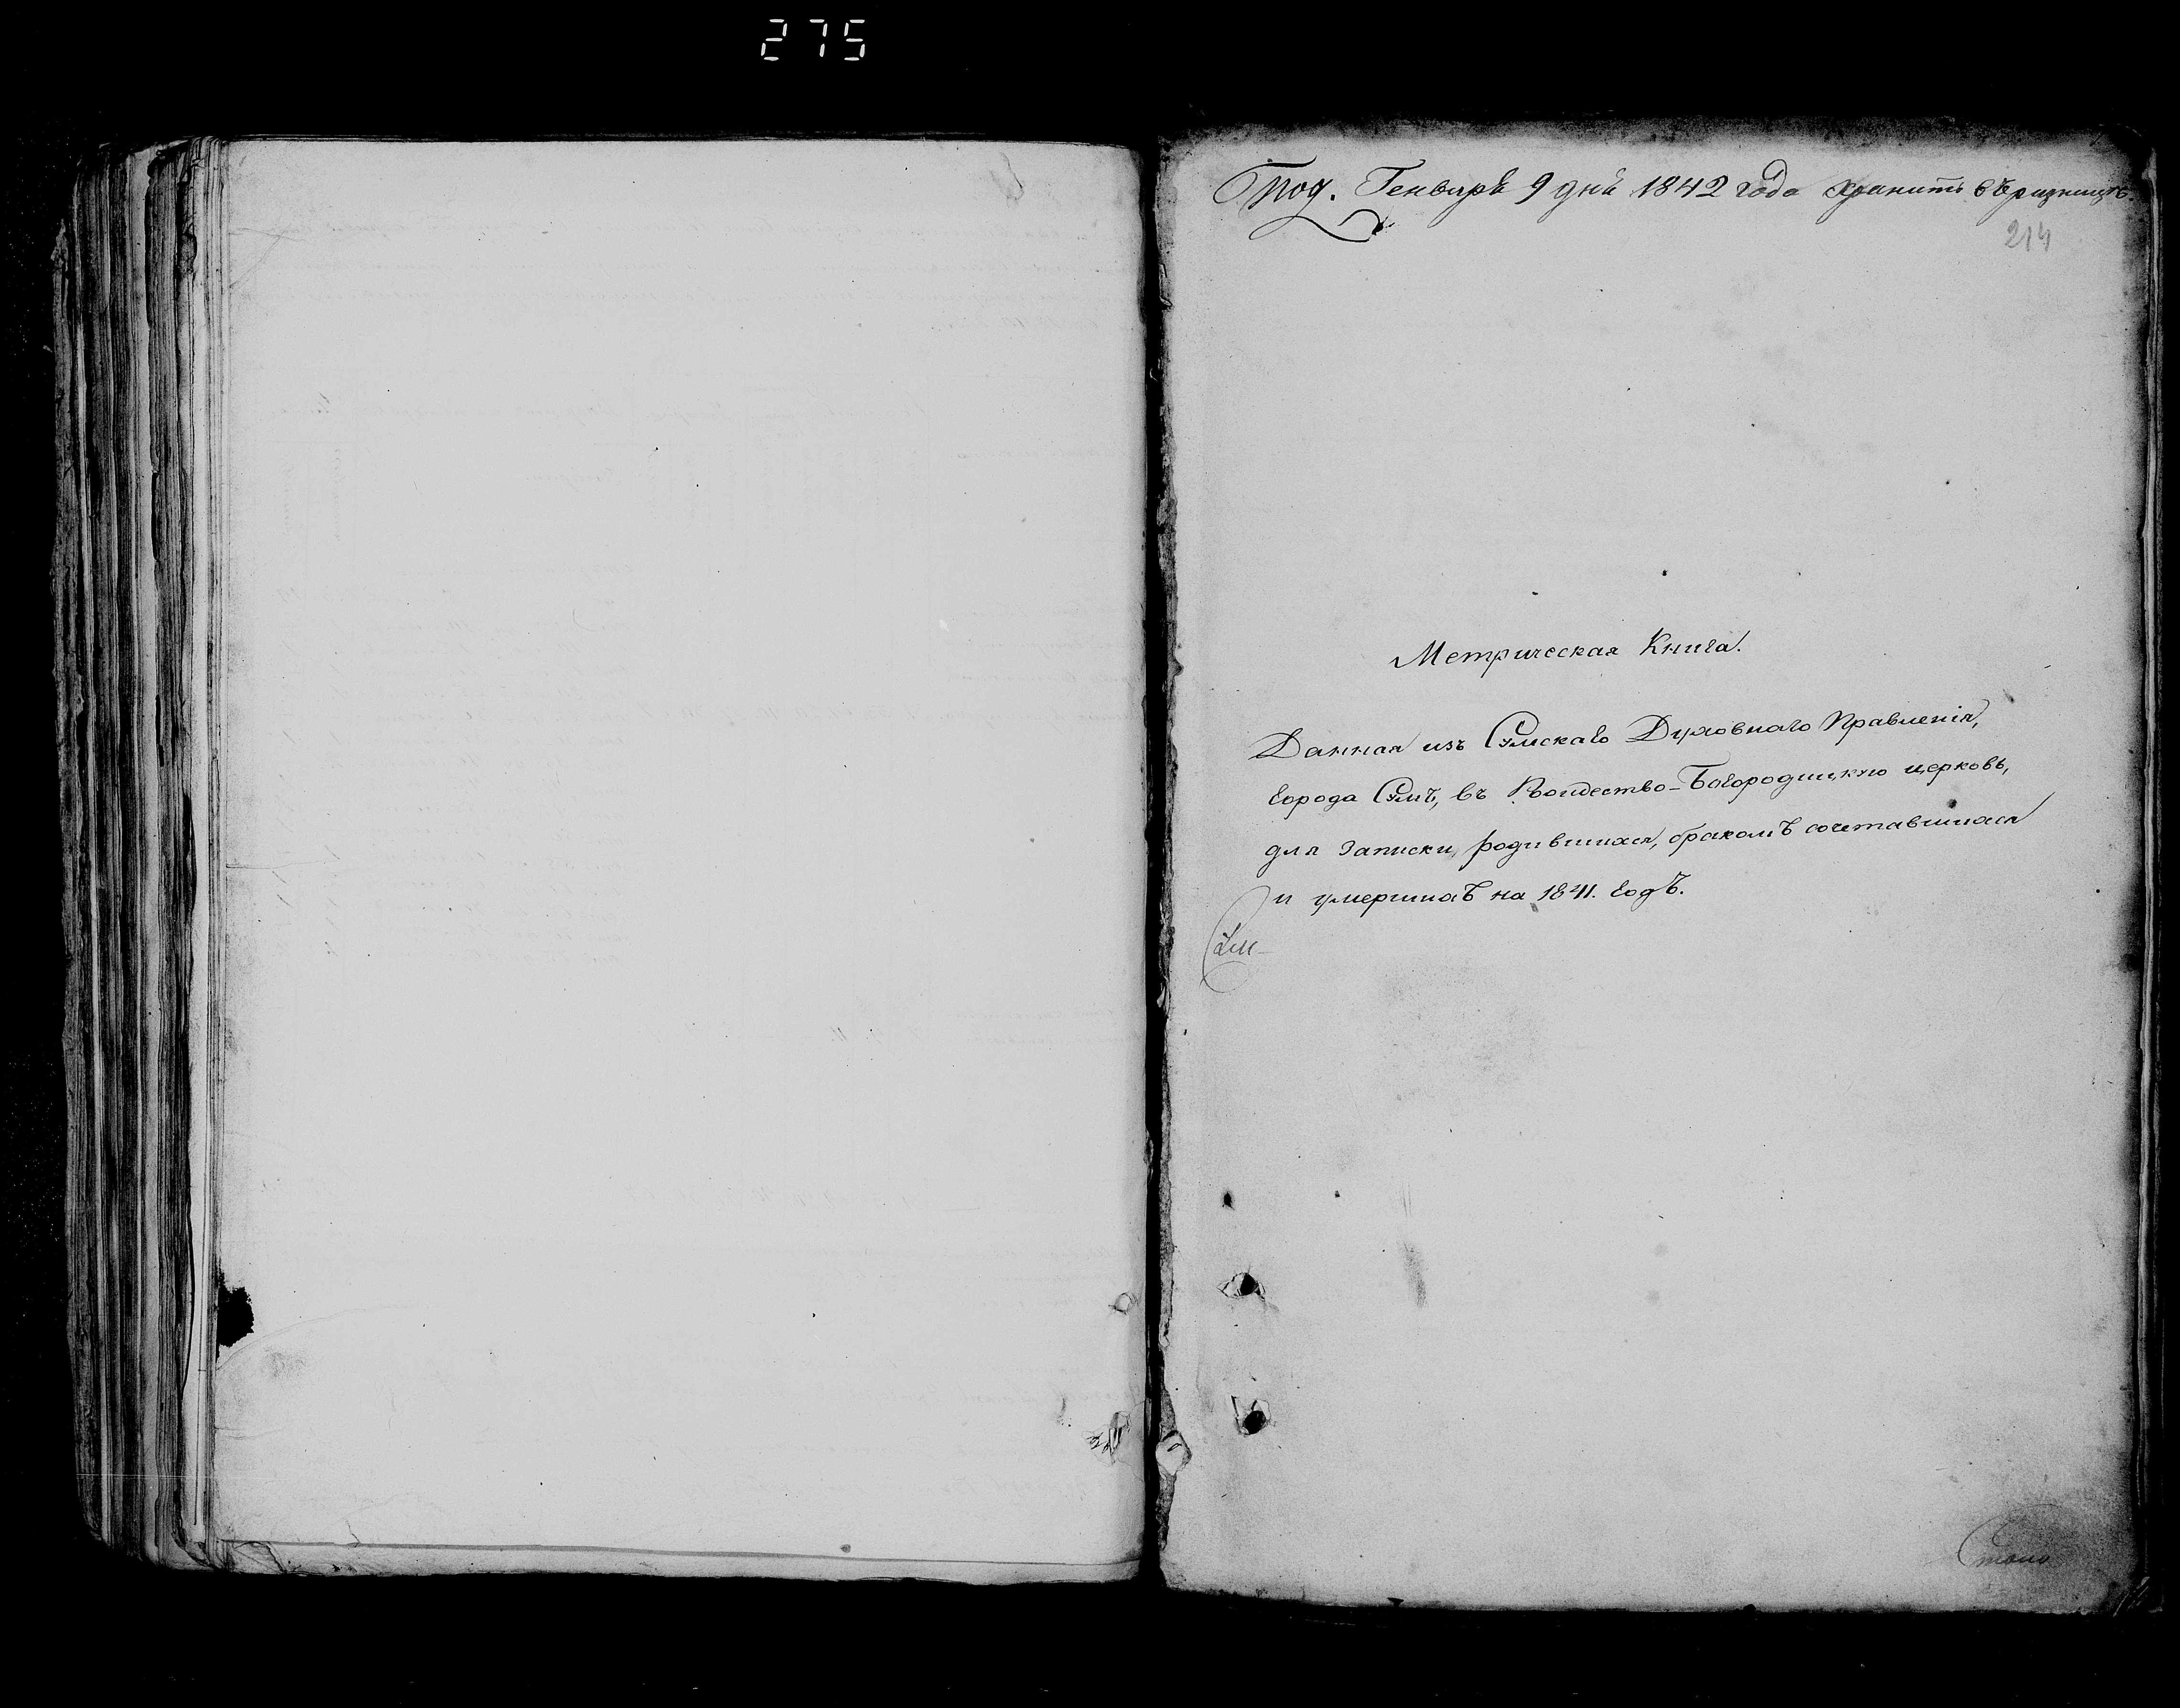 275
Под. Генваря 9 дня 1842 года хранить въ ризницѣ.
214
Метрическая Книга.
Данная изъ Сумскаго Духовнаго Правленія,
города Сумъ, въ Рождество-Богородицкую церковь,
для записки родившихся, бракомъ сочетавшихся
и умершихъ на 1841. годъ.